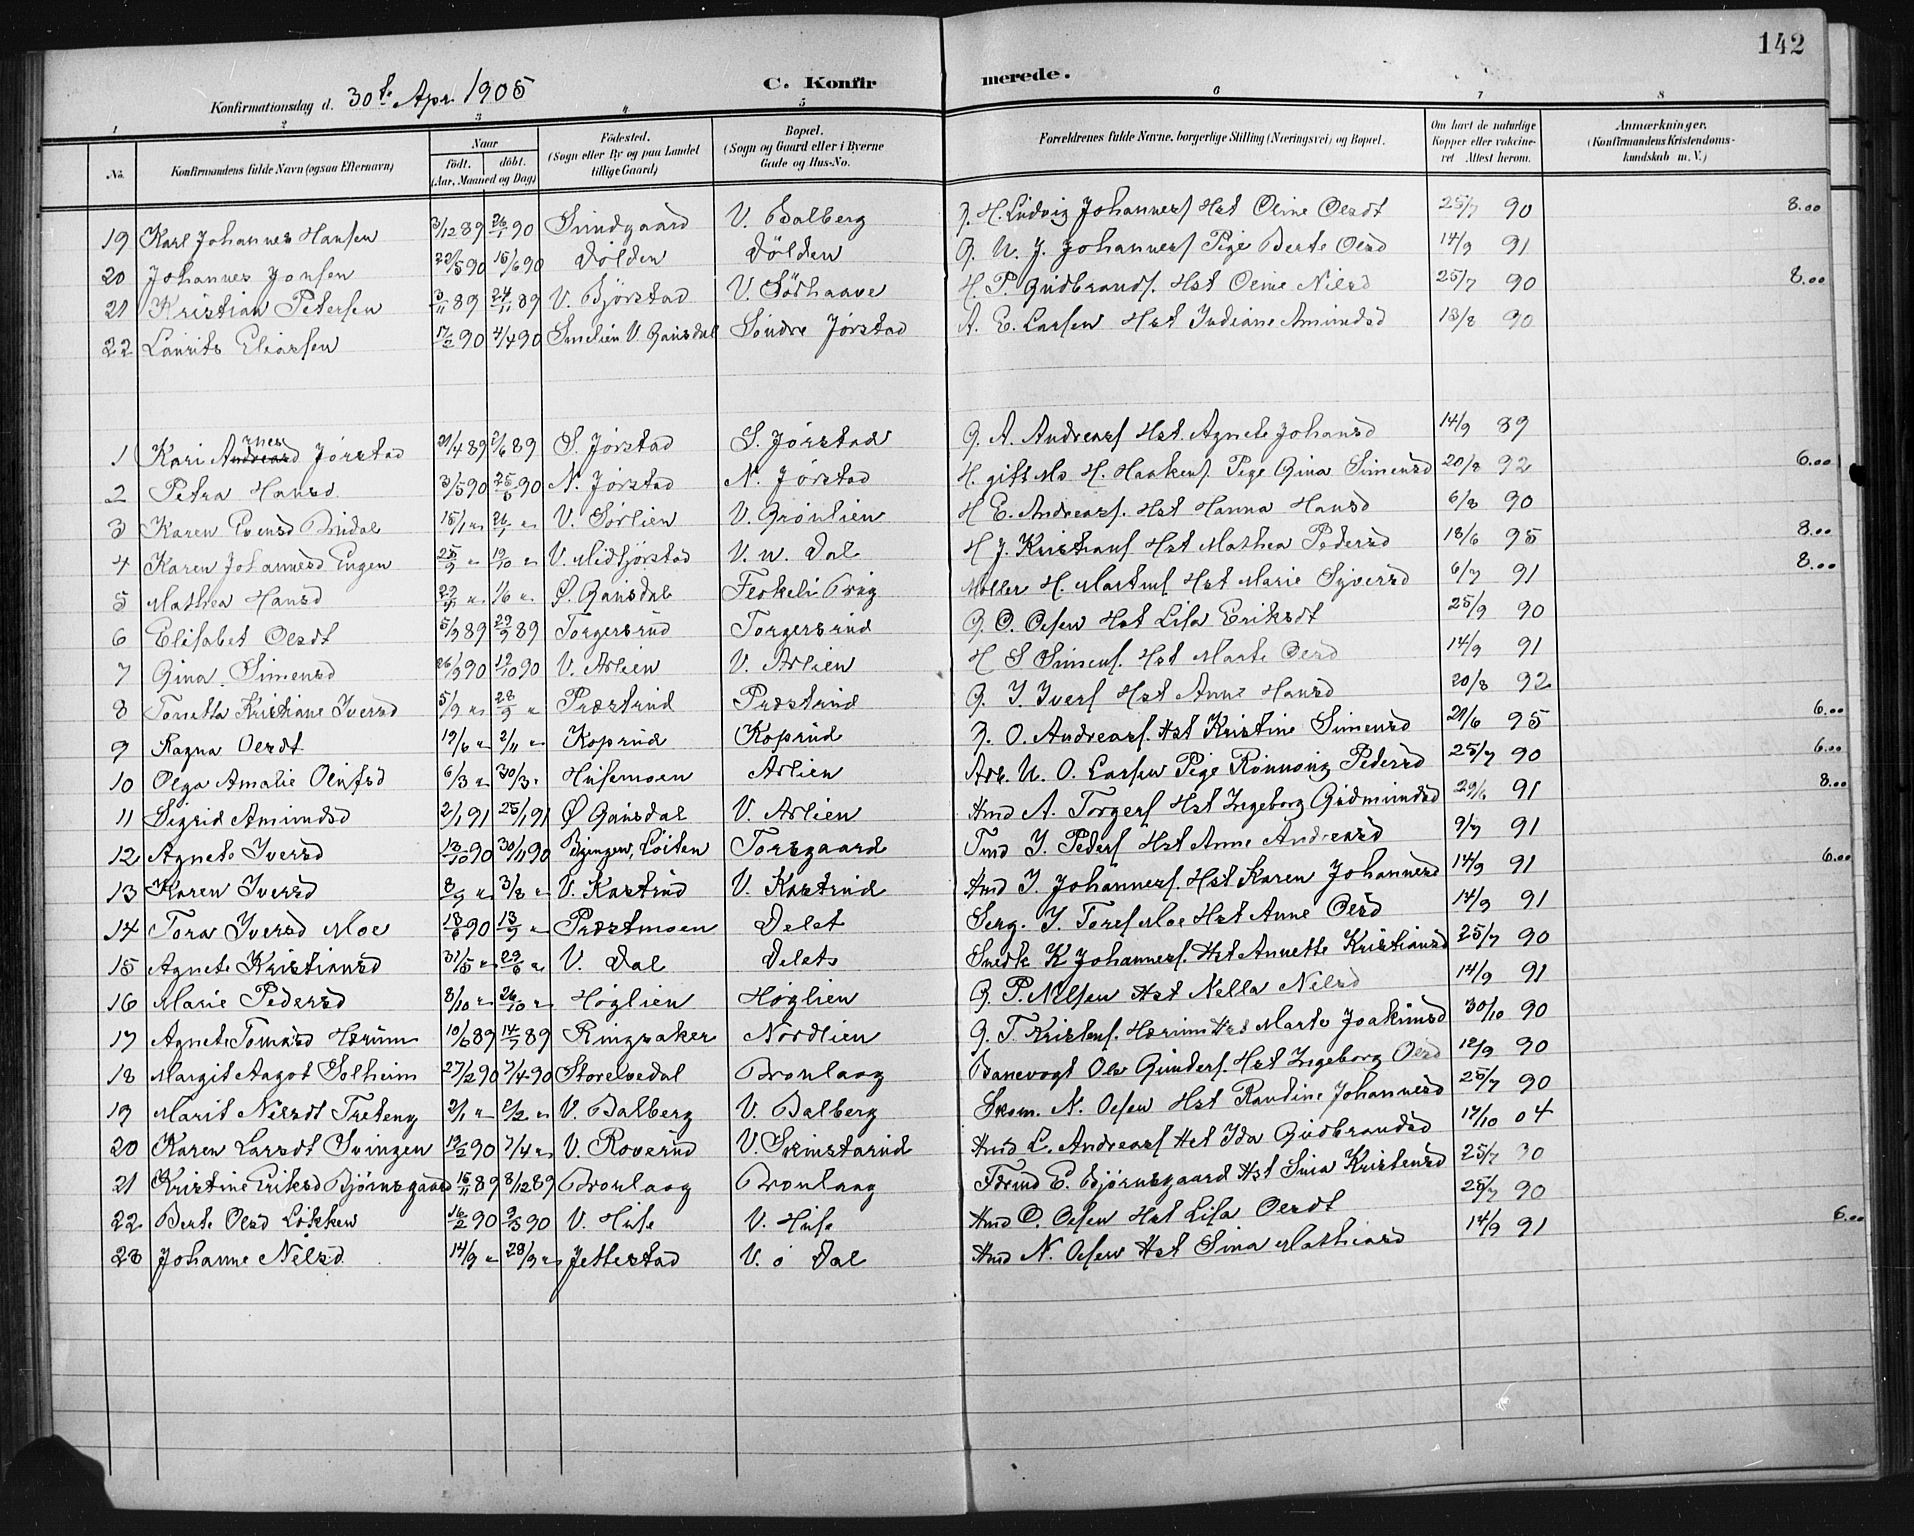 142
Konfirmationsdag d. 30te Apr 1905 C. Konfirmerede.
1 2 3 4 5 6 7 8
No. Konfirmandens fulde Navn (ogsaa Efternavn) Naar født. døbt. (Aar, Maaned og Dag) Fødested. (Sogn eller By og paa Landet tillige Gaard) Bopæl. (Sogn og Gaard eller i Byerne Gade og Hus-No. Forældrenes fulde Navne, borgerlige Stilling (Næringsvei) og Bopæl. Om havt de naturlige Kopper eller vakcineret. Attest herom. Anmærkninger. (Konfirmandens Kristendomskundskab m. V.)
19 Karl Johannes Hansen 3/12 89 26/1 90 Sundgaard V. Balberg G. H. Ludvig Johannesf Hst Oline Olsdt 25/7 90 8.00
20 Johannes Jonsen 22/5 90 15/6 90 Dølden Dølden G. U. J. Johannesf Pige Berte Olsd 14/9 91
21 Kristian Petersen 3/11 89 24/11 89 V. Bjørstad V. Sørhaave H. P. Gudbrandf. Hst Oline Nilsd 25/7 90 8.00
22 Laurits Eliassen 17/2 90 4/4 90 Smelien V. Gausdal Søndre Jørstad A. E. Larsen Hst Indiane Amundsd 13/8 90
1 Kari Arnesd Jørstad 21/4 89 2/6 89 S. Jørstad S. Jørstad G. A. Andreasf Hst. Agnete Johansd 14/9 89
2 Petra Hansd 3/5 90 25/5 90 N. Jørstad N. Jørstad H. gift Ms H. Haakenf. Pige Gina Simensd 20/8 92 6.00
3 Karen Evensd Bindal 15/1 " 26/1 " V. Sørlien V. Grønlien H E. Andreasf. Hst Hanna Hansd 6/8 90
4 Karen Johannesd Engen 25/9 " 19/10 " V. Midtjørstad V. n. Dal H J. Kristianf Hst Mathea Pedersd 18/6 95 8.00
5 Mathea Hansd " 1/6 " Ø. Gausdal Feskeli Brug Møller H. Martinf Hst Marie Syversd 6/7 91 8.00
6 Elisabet Olsdt 5/9 89 29/9 89 Torgersrud Torgersrud G. O. Olsen Hst Lisa Eriksdt 25/9 90
7 Gina Simensd 26/9 90 19/10 90 V. Aslien V. Aslien H S Simenf. Hst Marte Olsd 14/9 91
8 Tonetta Kristiane Iversd 5/9 " 28/9 " Præstrud Præstrud G. I. Iversf Hst Anne Hansd 20/8 92
9 Ragna Olsdt 19/6 " 2/11 " Koprud Koprud G. O. Andreasf. Hst Kristine Simensd 21/6 95 6.00
10 Olga Amalie Olufsd 6/3 " 30/3 " Husemoen Aslien Arb. U. O. Larsen Pige Rønnoug Pedersd 25/7 90 6.00
11 Sigrid Amundsd 2/1 91 25/1 91 Ø Gausdal V. Aslien Hmd A. Torgersf Hst Ingeborg Gudmundsd 29/6 91 8.00
12 Agnete Iversd 13/10 90 30/11 90 Løiten Torsgaard Tmd I. Pedersf Hst Anne Andreasd 9/7 91
13 Karen Iversd 8/7 " 3/8 " V. Kastrud V. Kastrud Hmd I. Johannesf. Hst Karen Johannesd 14/9 91 6.00
14 Tora Iversd Moe 18/6 90 13/7 " Præstmoen Delet Serg. I. Toref Moe Hst Anne Olsd 14/9 91
15 Agnete Kristiansd 31/5 " 29/6 " V. Dal Delets Snedk K Johannesf. Hst Annette Kristiansd 25/7 90
16 Marie Pedersd 8/10 " 26/10 " Høglien Høglien G P. Nilsen Hst Nella Nilsd 14/9 91
17 Agnete Tomasd Hærum 10/6 89 14/7 89 Ringsaker Nordlien G. T. Kristenf. Hærum Hst Marte Joakimsd 30/10 90
18 Margit Aagot Solheim 27/2 90 7/4 90 Storelvedal Bronlaag Banevogt Ole Gundersf. Hst Ingeborg Olsd 12/9 90
19 Marit Nilsdt Treteng 2/1 " 2/2 " V. Balberg V. Balberg Skom. N. Olsen Hst Randine Johannesd 25/7 90
20 Karen Larsdt Svingen 19/2 90 7/4 " V. Roverud V. Skinstarud Hmd L. Andreasf Hst Ida Gudbrandsd 17/10 04
21 Kristine Eriksd Bjørnsgaard 15/11 89 8/12 89 Bronlaag Bronlaag Formd E. Bjørnsgaard Hst Sina Kristensd 25/7 90
22 Berte Olsd Løkken 16/2 90 9/3 90 V. Huse V. Huse Hmd O. Olsen Hst Lisa Olsdt 25/7 90
23 Johanne Nilsd 14/9 " 28/9 " Jettestad V. ø Dal Hmd N. Olsen Hst Sina Mathiasd 14/9 91 6.00